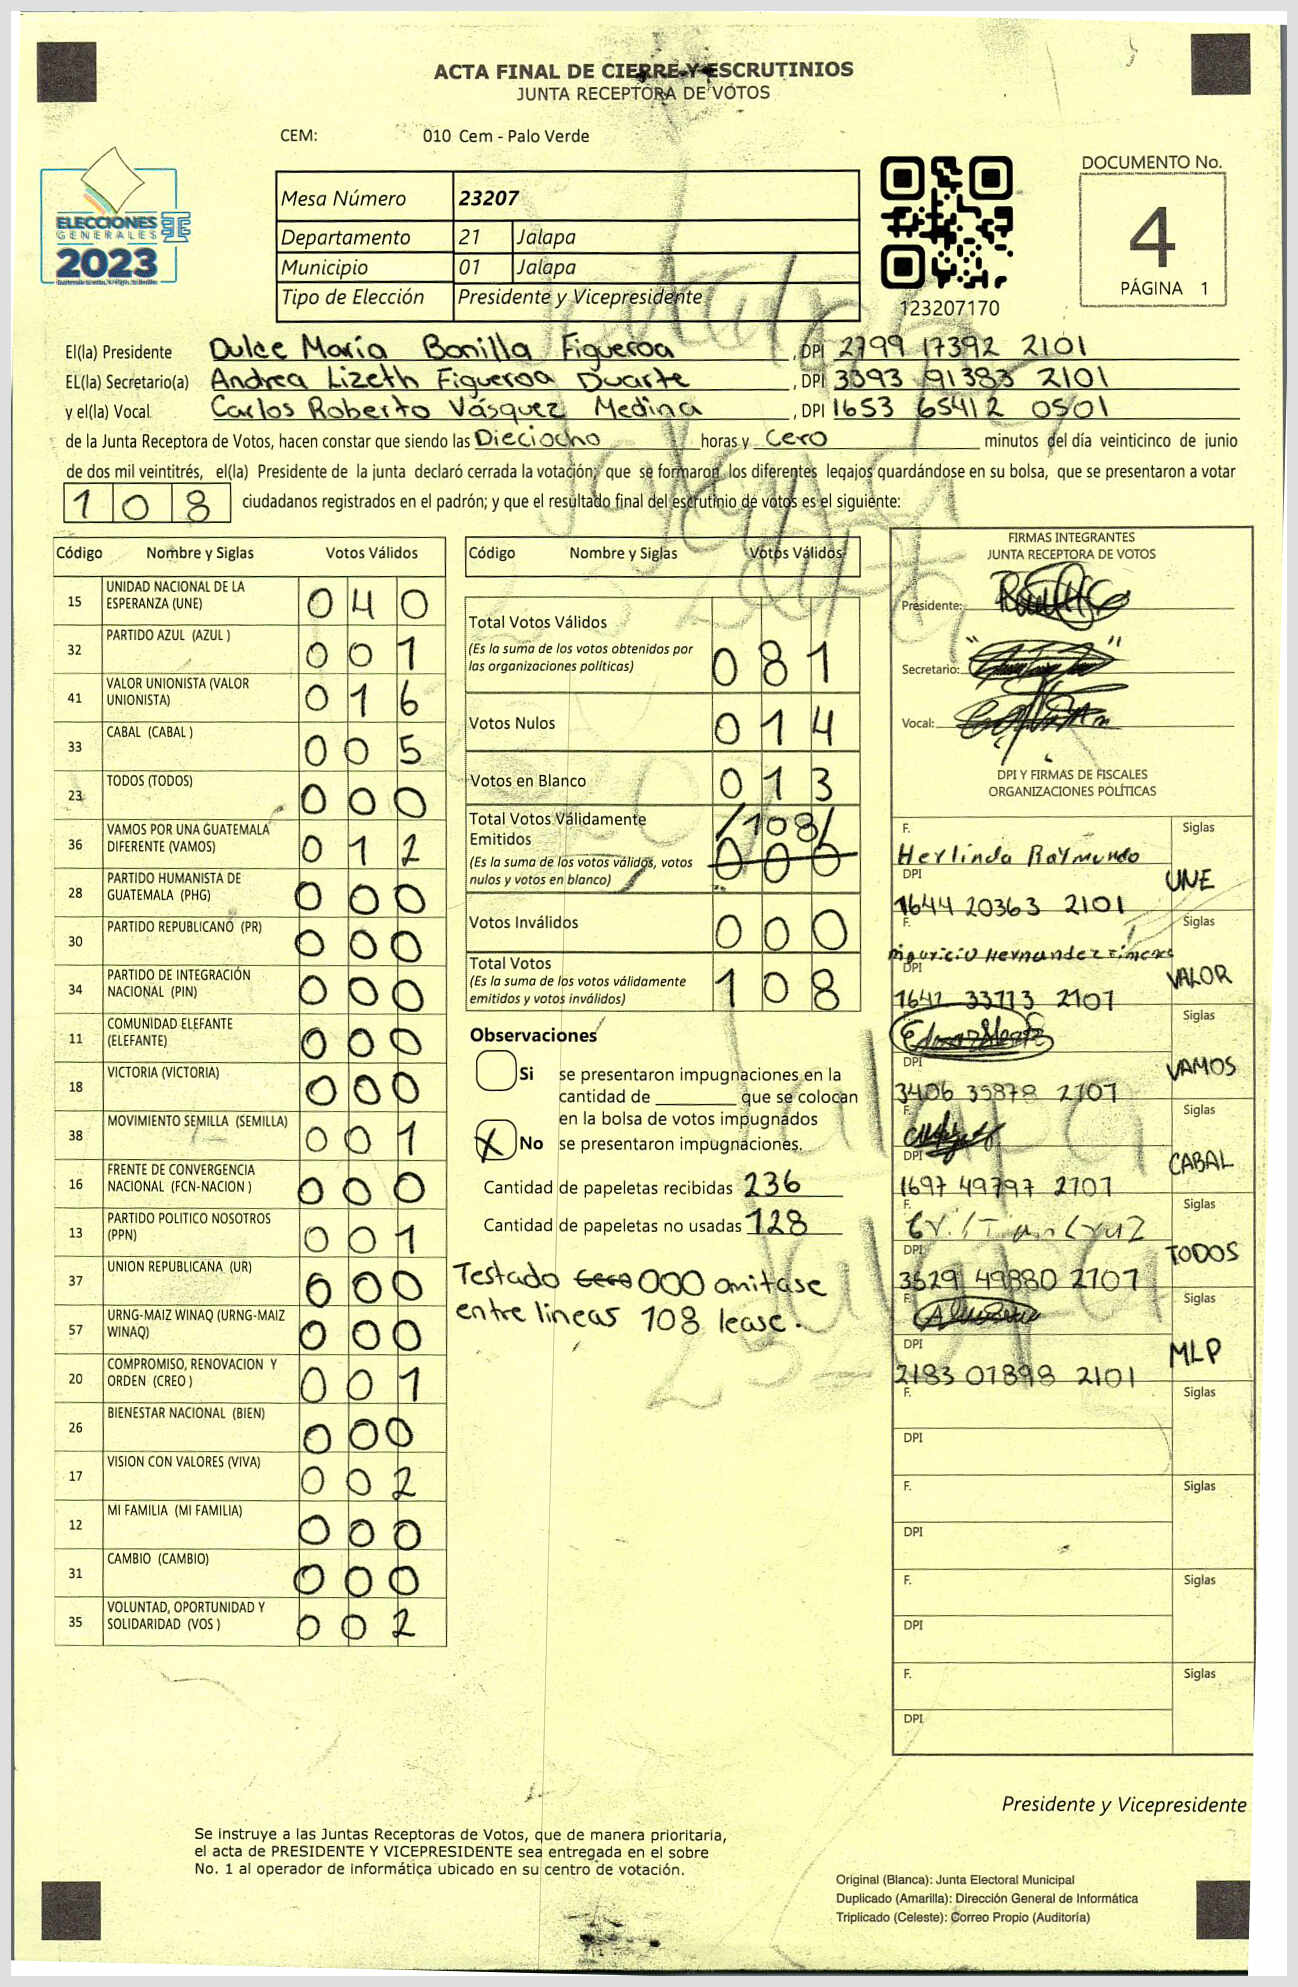 ACTA FINAL DE CIERRE Y ESCRUTINIOS
JUNTA RECEPTORA DE VOTOS
CEM: 010 Cem - Palo Verde
ELECCIONES
GENERALES
2023
Mesa Número 23207
Departamento 21 Jalapa
Municipio 01 Jalapa
Tipo de Elección Presidente y Vicepresidente
123207170
DOCUMENTO No.
4
PÁGINA 1
El(la) Presidente Dulce María Bonilla Figueroa, DPI 2799 17392 2101
EL(la) Secretario(a) Andrea Lizeth Figueroa Duarte, DPI 3393 91383 2101
y el(la) Vocal Carlos Roberto Vásquez Medina, DPI 1653 65412 0501
de la Junta Receptora de Votos, hacen constar que siendo las Dieciocho horas y Cero minutos del día veinticinco de junio
de dos mil veintitrés, el(la) Presidente de la junta declaró cerrada la votación; que se formaron los diferentes legajos guardándose en su bolsa, que se presentaron a votar
108 ciudadanos registrados en el padrón; y que el resultado final del escrutinio de votos es el siguiente:
Código Nombre y Siglas Votos Válidos
15 UNIDAD NACIONAL DE LA ESPERANZA (UNE) 040
32 PARTIDO AZUL (AZUL ) 001
41 VALOR UNIONISTA (VALOR UNIONISTA) 016
33 CABAL (CABAL ) 005
23 TODOS (TODOS) 000
36 VAMOS POR UNA GUATEMALA DIFERENTE (VAMOS) 012
28 PARTIDO HUMANISTA DE GUATEMALA (PHG) 000
30 PARTIDO REPUBLICANO (PR) 000
34 PARTIDO DE INTEGRACIÓN NACIONAL (PIN) 000
11 COMUNIDAD ELEFANTE (ELEFANTE) 000
18 VICTORIA (VICTORIA) 000
38 MOVIMIENTO SEMILLA (SEMILLA) 001
16 FRENTE DE CONVERGENCIA NACIONAL (FCN-NACION ) 000
13 PARTIDO POLITICO NOSOTROS (PPN) 001
37 UNION REPUBLICANA (UR) 000
57 URNG-MAIZ WINAQ (URNG-MAIZ WINAQ) 000
20 COMPROMISO, RENOVACION Y ORDEN (CREO ) 001
26 BIENESTAR NACIONAL (BIEN) 000
17 VISION CON VALORES (VIVA) 002
12 MI FAMILIA (MI FAMILIA) 000
31 CAMBIO (CAMBIO) 000
35 VOLUNTAD, OPORTUNIDAD Y SOLIDARIDAD (VOS ) 002
Código Nombre y Siglas Votos Válidos
Total Votos Válidos 081
(Es la suma de los votos obtenidos por
las organizaciones políticas)
Votos Nulos 014
Votos en Blanco 013
Total Votos Válidamente Emitidos /108/ 000
(Es la suma de los votos válidos, votos
nulos y votos en blanco)
Votos Inválidos 000
Total Votos 108
(Es la suma de los votos válidamente
emitidos y votos inválidos)
Observaciones
Si se presentaron impugnaciones en la
cantidad de ________ que se colocan
en la bolsa de votos impugnados
X No se presentaron impugnaciones.
Cantidad de papeletas recibidas 236
Cantidad de papeletas no usadas 128
Testado Cero 000 omitase
entre lineas 108 lease.
FIRMAS INTEGRANTES
JUNTA RECEPTORA DE VOTOS
Presidente:
Secretario:
Vocal:
DPI Y FIRMAS DE FISCALES
ORGANIZACIONES POLÍTICAS
F. Siglas
Herlinda Raymundo
DPI UNE
1644 20363 2101
F. Siglas
Mauricio Hernandez Jimenez
DPI VALOR
1641 33713 2101
Siglas
DPI VAMOS
3406 35878 2101
F. Siglas
DPI CABAL
1697 49797 2101
F. Siglas
DPI TODOS
3629 49880 2101
F. Siglas
DPI MLP
2183 01898 2101
F. Siglas
DPI
F. Siglas
DPI
F. Siglas
DPI
F. Siglas
DPI
Presidente y Vicepresidente
Se instruye a las Juntas Receptoras de Votos, que de manera prioritaria,
el acta de PRESIDENTE Y VICEPRESIDENTE sea entregada en el sobre
No. 1 al operador de informática ubicado en su centro de votación.
Original (Blanca): Junta Electoral Municipal
Duplicado (Amarilla): Dirección General de Informática
Triplicado (Celeste): Correo Propio (Auditoría)